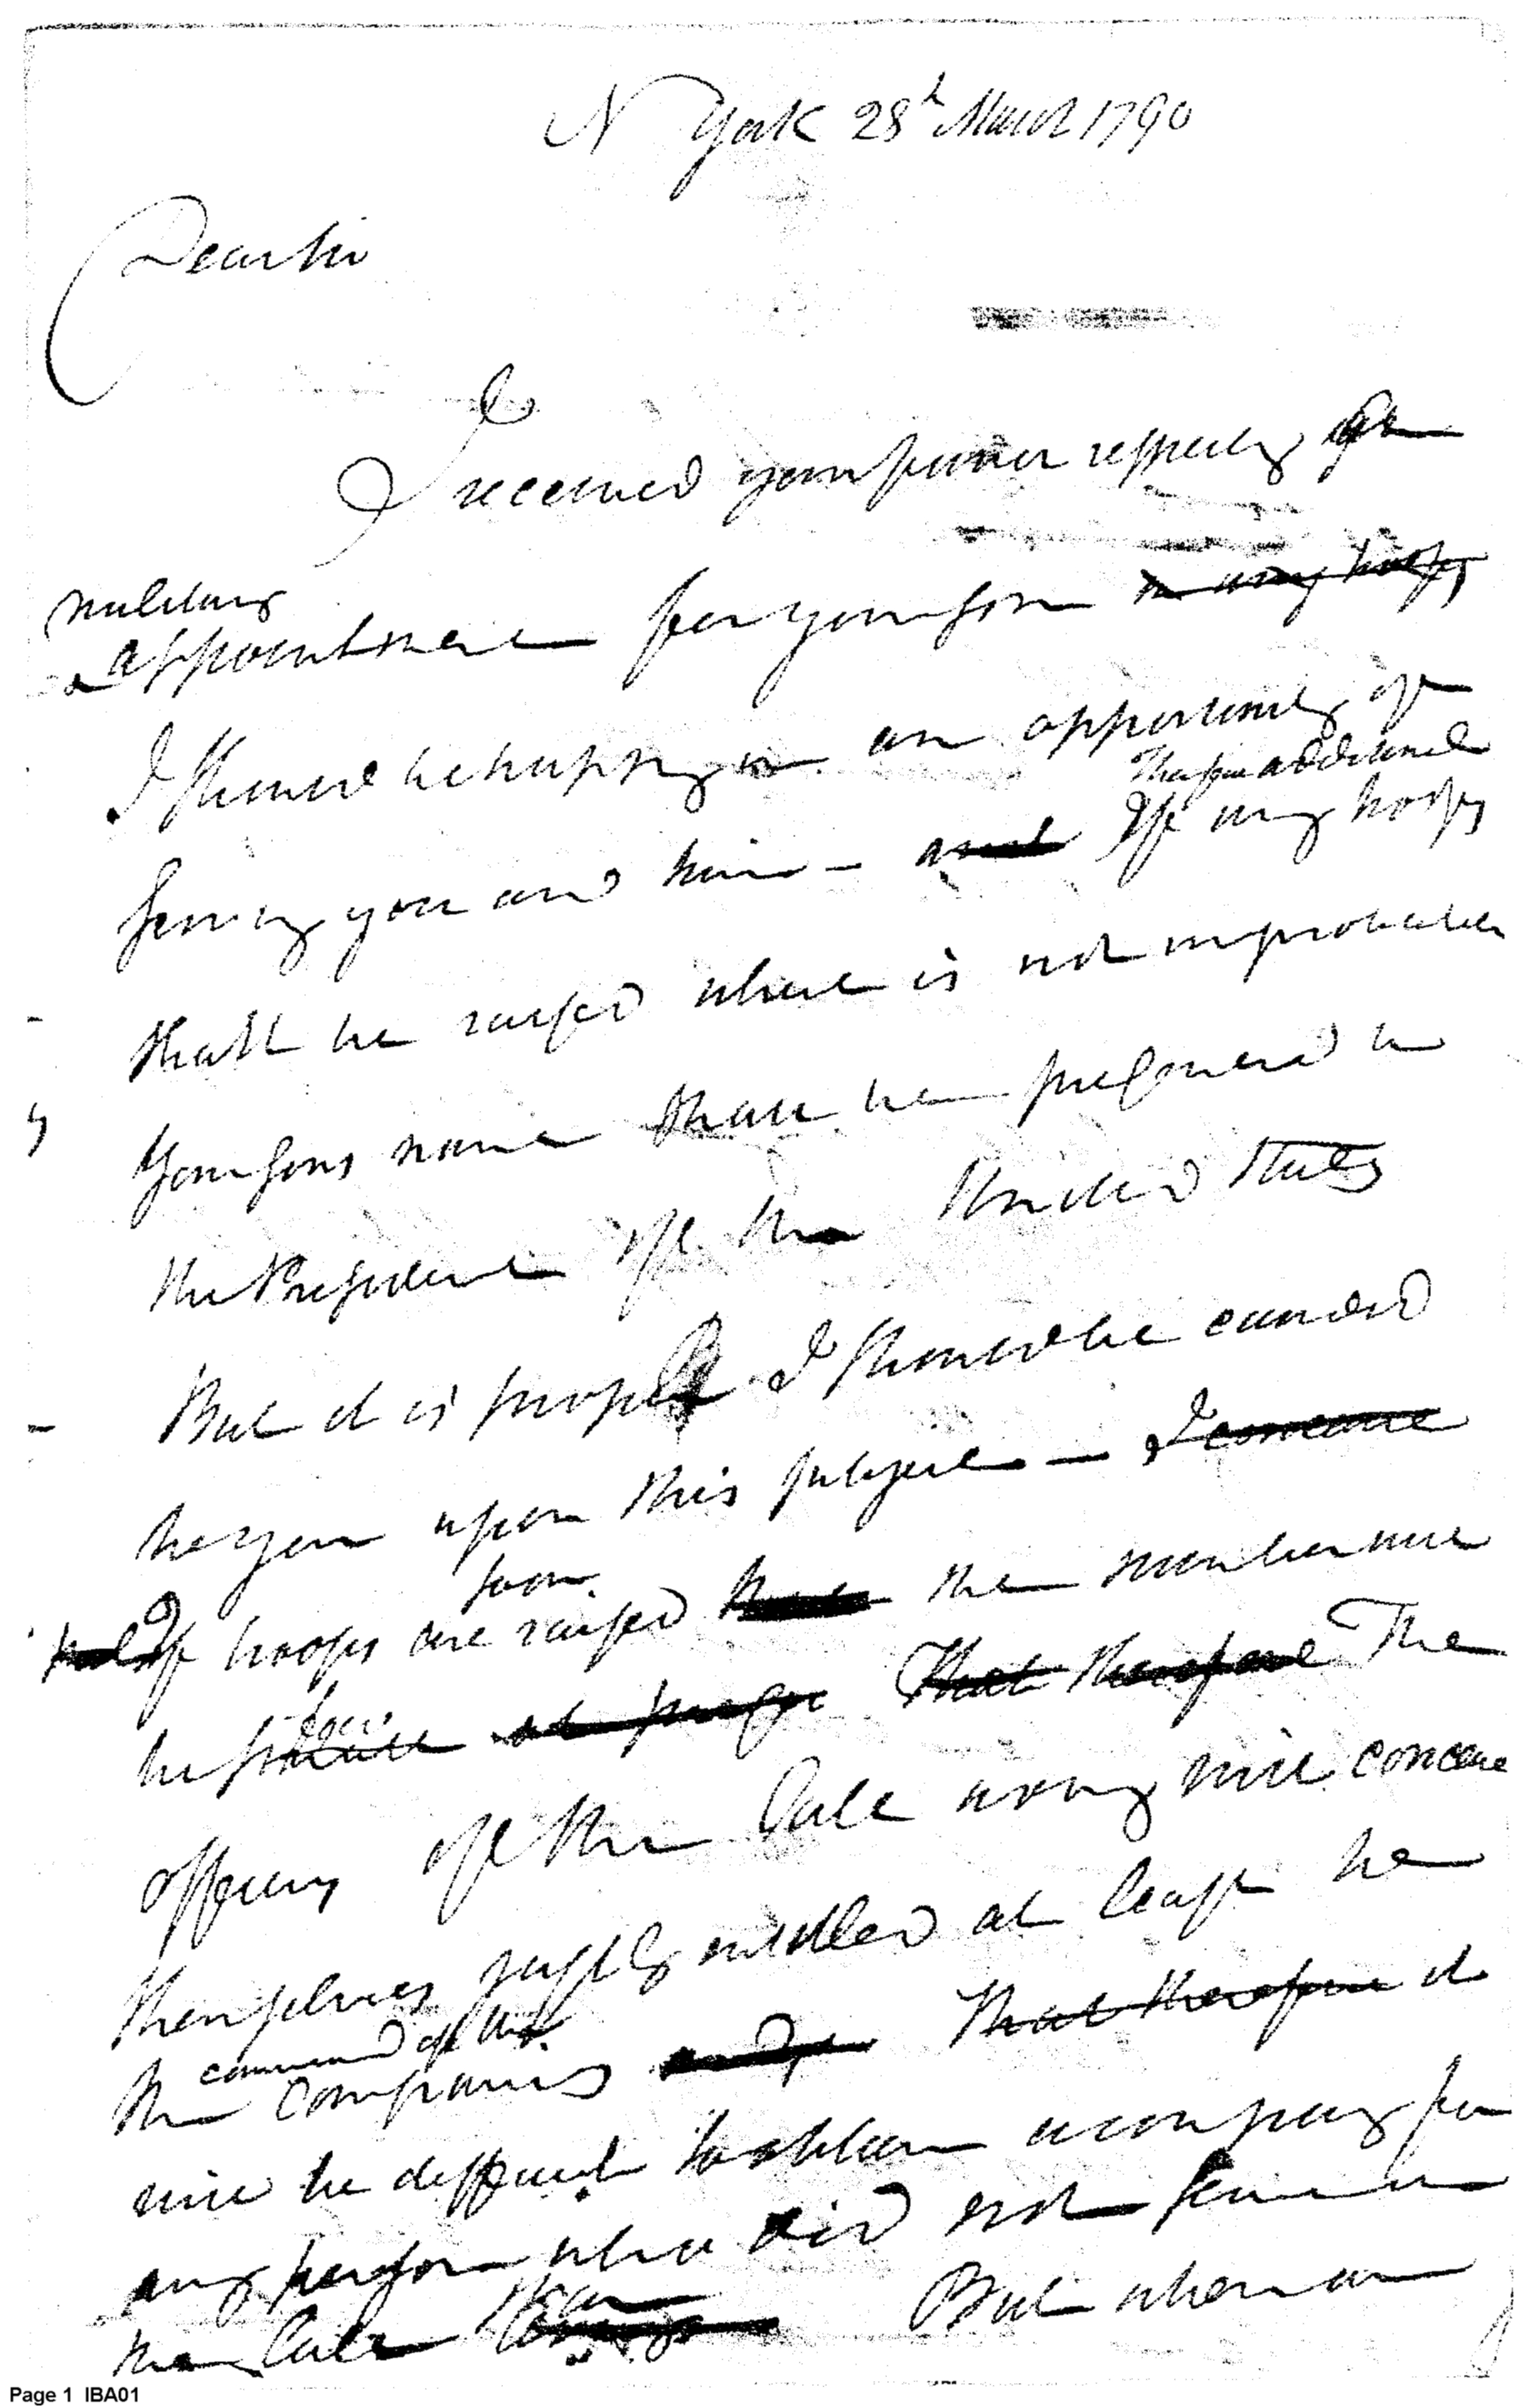 N York 28h March 1790
Dear Sir
I received your favor respectg
military
a appointment for your son in any troops
I should be happy in an opportunity of
These additional
serving you and him - and If any troops
shall be raised which is not improbable
Your sons name shall be presented to
the President of the United States
But it is proper I should be candid
to you upon this subject — I conceive
soon
If troops are raised the number will
be small at present That therefore The
few
officers of the late army will conceive
themselves justly entitled at least to
command of the
the companies That therefore it
will be difficult to obtain a company for
any person who did not serve in
the late war But when an
Page 1 IBA01